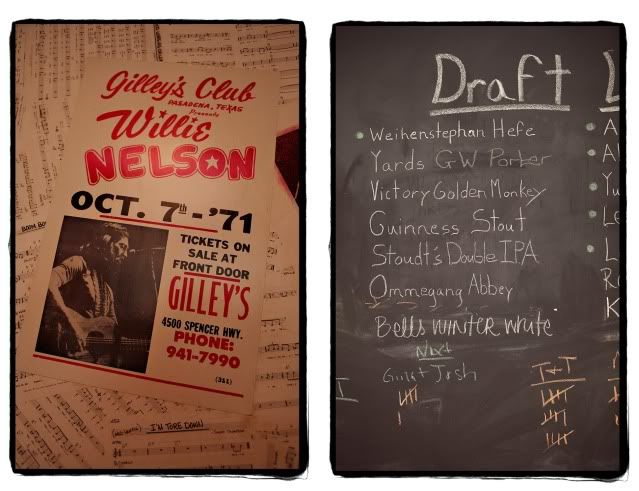 Gilley's Club
PASADENA, TEXAS
Presents
Willie
NELSON
OCT. 7th - '71
TICKETS ON
SALE AT
FRONT DOOR
GILLEY'S
4500 SPENCER HWY.
PHONE:
941-7990
I'M TORE DOWN
Draft
Weihenstephan Hefe
Yards GW Porter
Victory Golden Monkey
Guinness Stout
Stoudt's Double IPA
Ommegang Abbey
Bells winter white
Next
Josh